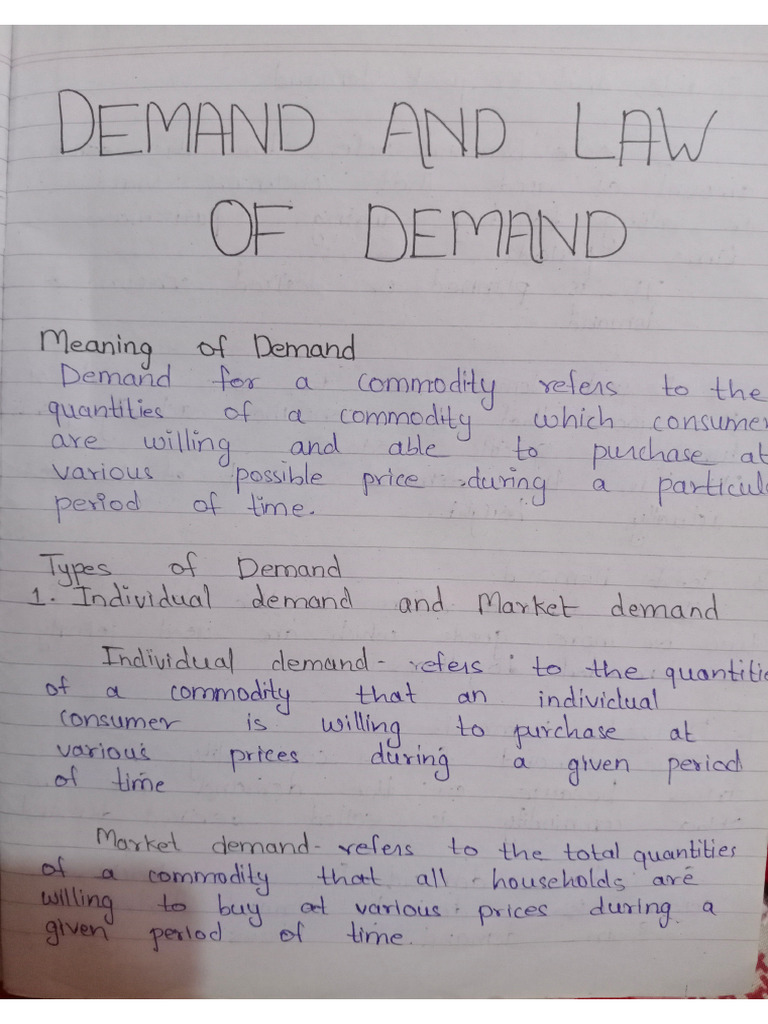 DEMAND AND LAW
OF DEMAND
Meaning of Demand
Demand for a commodity refers to the
quantities of a commodity which consumer
are willing and able to purchase at
various possible price during a particul
period of time.
Types of Demand
1. Individual demand and Market demand
Individual demand - refers to the quantitie
of a commodity that an individual
consumer is willing to purchase at
various prices during a given period
of time
Market demand - refers to the total quantities
of a commodity that all households are
willing to buy at various prices during a
given period of time.